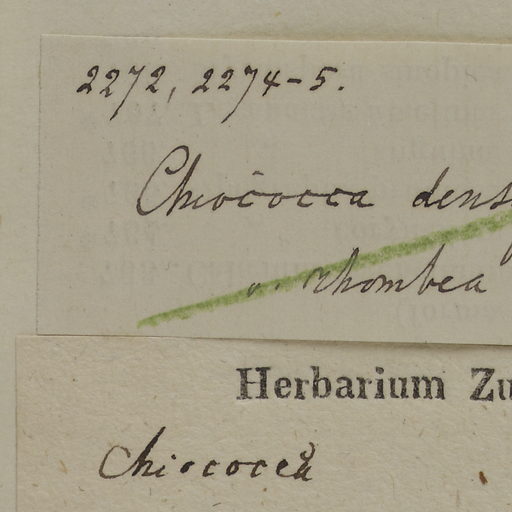 2272, 2274-5.
Chiococca dens
v. rhombea
Herbarium Zu
Chiococca